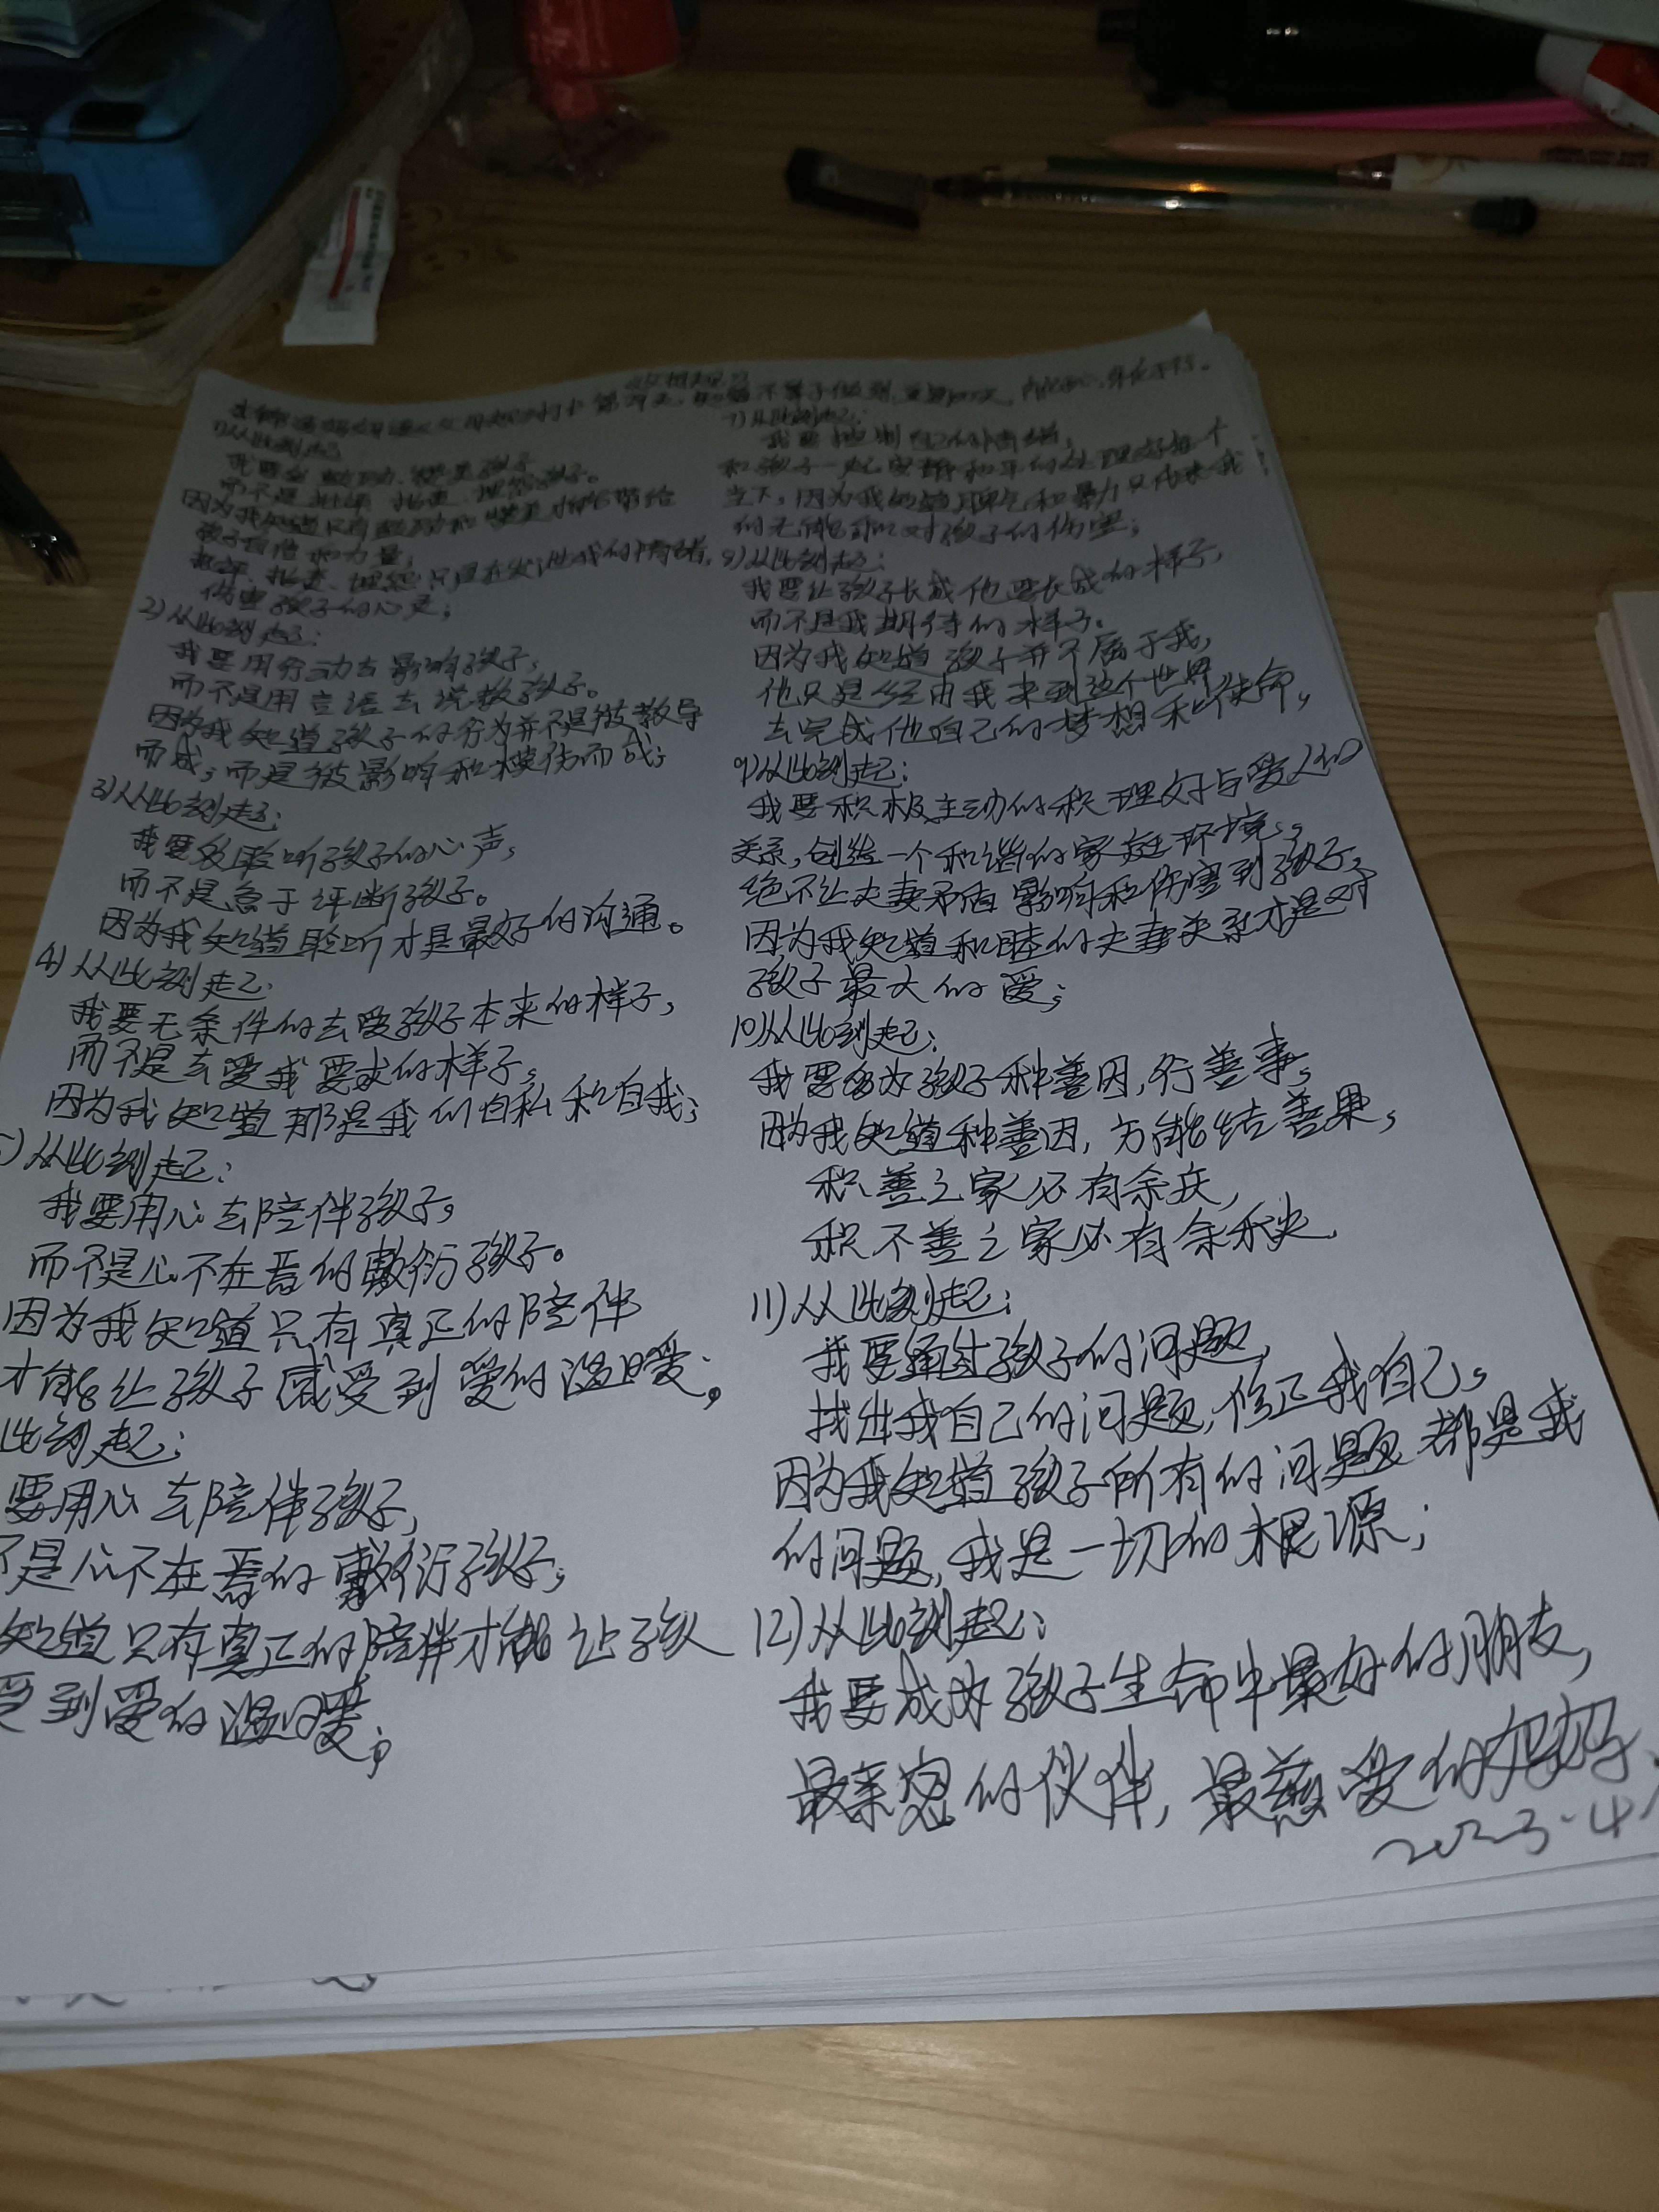 父母规
1)从此刻起
我要多鼓励、赞美孩子
而不是批评、指责、埋怨孩子。
因为我知道只有鼓励和赞美才能带给
孩子自信和力量;
批评、指责、埋怨只是在发泄我的情绪,
伤害孩子的心灵;
2)从此刻起:
我要用行动去影响孩子,
而不是用言语去说教孩子。
因为我知道孩子的行为并不是被教导
而成,而是被影响和模仿而成;
3)从此刻起:
我要多聆听孩子的心声,
而不是急于评断孩子。
因为我知道聆听才是最好的沟通。
4)从此刻起:
我要无条件的去爱孩子本来的样子,
而不是去爱我要求的样子,
因为我知道那是我的自私和自我;
5)从此刻起:
我要用心去陪伴孩子,
而不是心不在焉的敷衍孩子。
因为我知道只有真正的陪伴
才能让孩子感受到爱的温暖;
此刻起:
要用心去陪伴孩子,
不是心不在焉的敷衍孩子;
知道只有真正的陪伴才能让孩
受到爱的温暖;
7)从此刻起:
我要控制自己的情绪,
和孩子一起安静和平的处理好每个
当下,因为我知道脾气和暴力只代表我
的无能和对孩子的伤害;
8)从此刻起:
我要让孩子长成他要长成的样子,
而不是我期待的样子。
因为我知道孩子并不属于我,
他只是经由我来到这个世界
去完成他自己的梦想和使命,
9)从此刻起:
我要积极主动的积理好与爱人的
关系,创造一个和谐的家庭环境,
绝不让夫妻矛盾影响和伤害到孩子,
因为我知道和睦的夫妻关系才是对
孩子最大的爱;
10)从此刻起:
我要多为孩子种善因,行善事,
因为我知道种善因,方能结善果,
积善之家必有余庆,
积不善之家必有余秧,
11)从此刻起:
我要通过孩子的问题,
找出我自己的问题,修正我自己。
因为我知道孩子所有的问题都是我
的问题,我是一切的根源;
12)从此刻起:
我要成为孩子生命中最好的朋友,
最亲密的伙伴,最慈爱的妈妈
2023.4